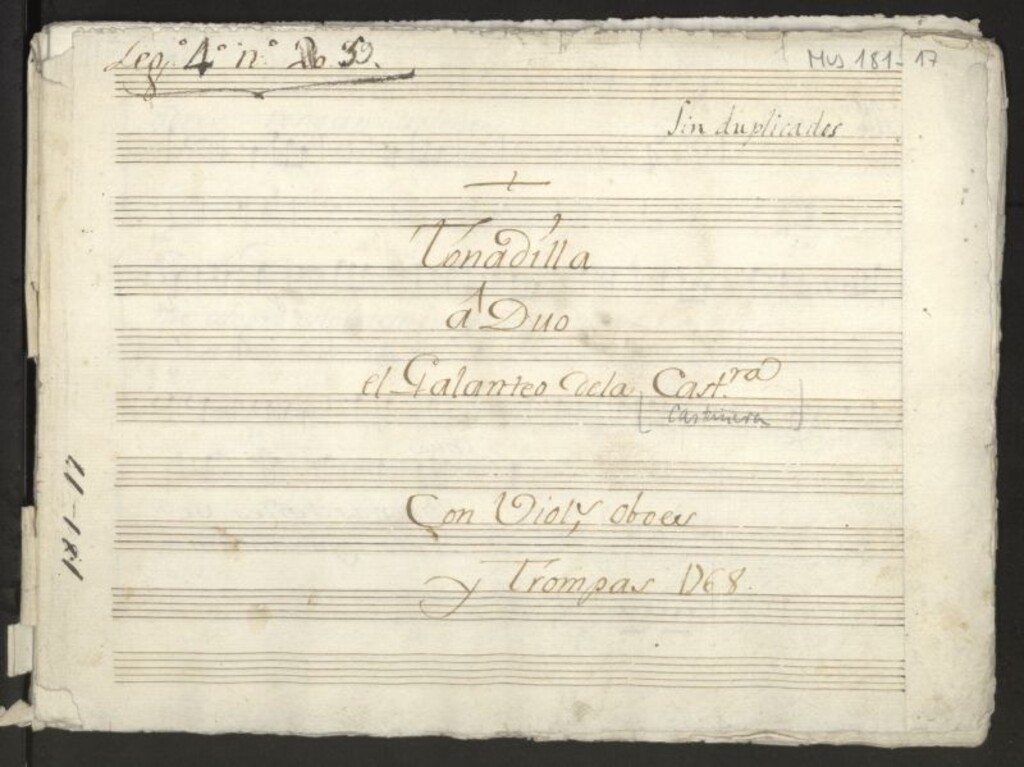 Leg.º 4º nº 33.
Mus 181-17
Sin duplicados
Tonadilla
á Duo
el Galanteo dela Cast.ra
(Castañera)
Con Viol.s, oboes
y Trompas 1768.
181-17